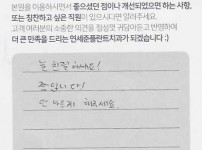 본원을 이용하시면서 좋으셨던 점이나 개선되었으면 하는 사항,
또는 칭찬하고 싶은 직원이 있으시다면 알려주세요.
고객 여러분의 소중한 의견을 철썸껏 귀담아듣고 반영하여
더 큰 만족을 드리는 연세준플란트치과가 되겠습니다 :)
늘 친절하세요!
좋습니다!
안 아프게 치료해주세요